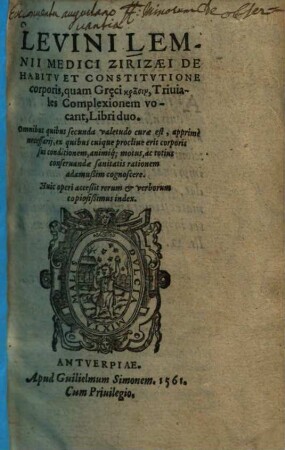 Ex conventu augustano ff. Minorum De obser
vantia
LEVINI LEM-
NII MEDICI ZIRIZÆI DE
HABITV ET CONSTITVTIONE
corporis, quam Gręci κρᾶσιν, Triuia-
les Complexionem vo-
cant, Libri duo.
Omnibus quibus secunda valetudo curæ est, apprimè
necessarij, ex quibus cuique procliue erit corporis
sui conditionem, animiq; motus, ac totius
conseruandæ sanitatis rationem
adamussim cognoscere.
Huic operi accessit rerum & verborum
copiosissimus index.
DVLCIA
MIXTA
MALIS
ANTVERPIAE.
Apud Guilielmum Simonem. 1561.
Cum Priuilegio.